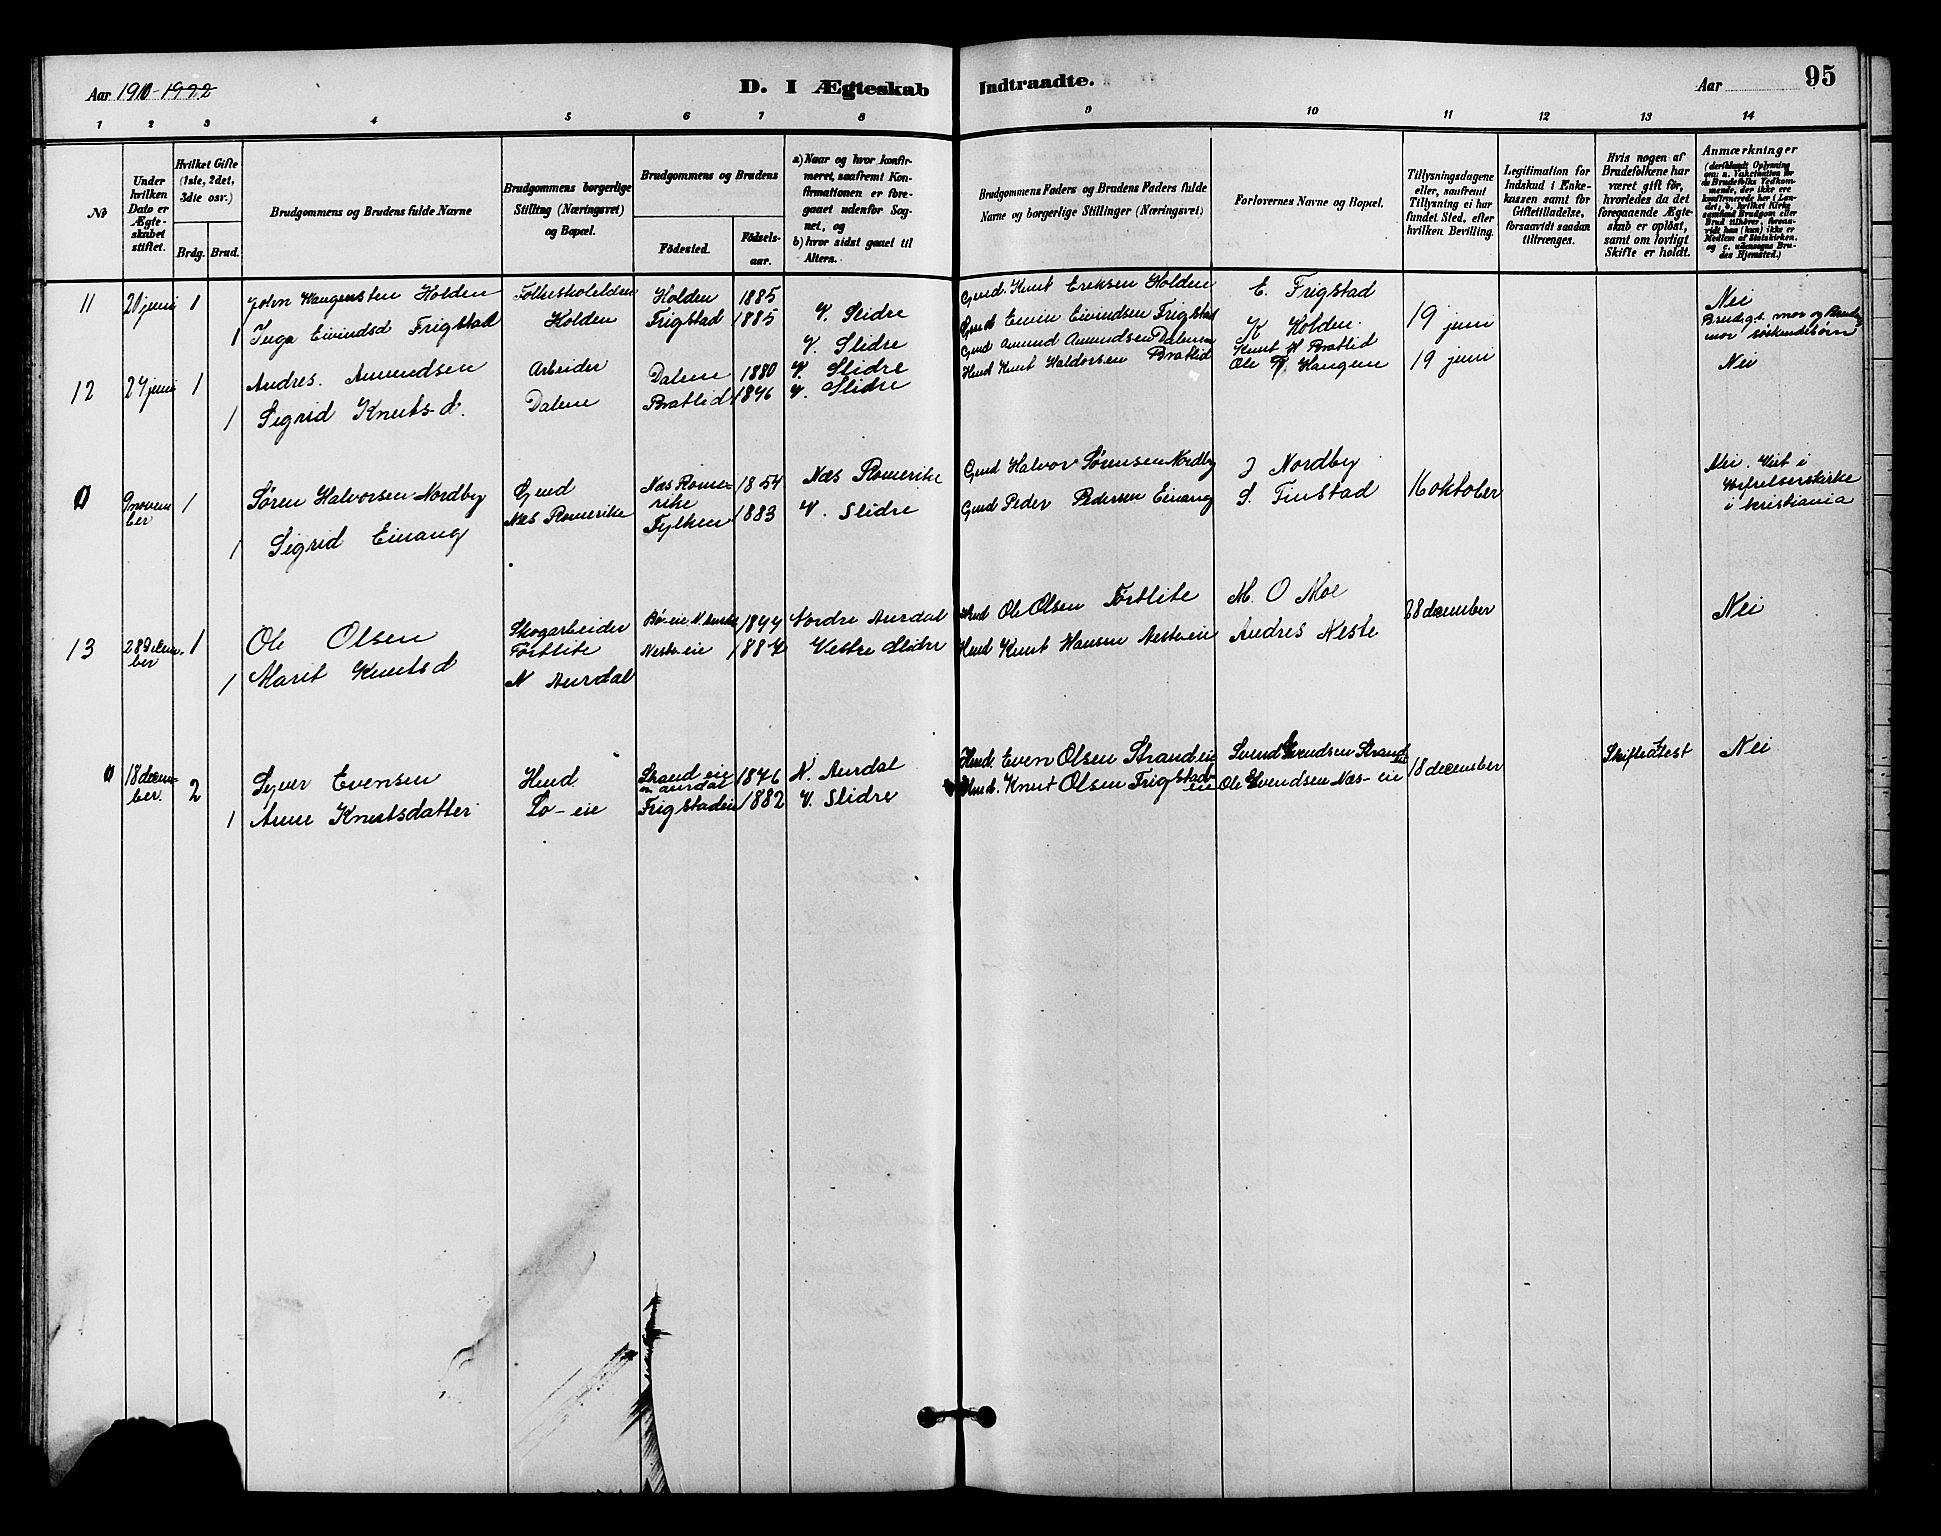 Aar 1910-1922
D. I Ægteskab Indtraadte.
Aar
95
1 2 3 4 5 6 7 8 9 10 11 12 13 14
№
Under hvilken Dato er Ægteskabet stiftet.
Hvilket Gifte (1ste, 2det, 3die osv.)
Brdg. Brud.
Brudgommens og Brudens fulde Navne
Brudgommens borgerlige Stilling (Næringsvei) og Bopæl.
Brudgommens og Brudens
Fødested. Fødselsaar.
a) Naar og hvor konfirmeret, saafremt Konfirmationen er foregaaet udenfor Sognet, og
b) hvor sidst gaaet til Alters.
Brudgommens Faders og Brudens Faders fulde Navne og borgerlige Stillinger (Næringsvei)
Forlovernes Navne og Bopæl.
Tillysningsdagene eller, saafremt Tillysning ei har fundet Sted, efter hvilken Bevilling.
Legitimation for Indskud i Enkekassen samt for Giftetilladelse, forsaavidt saadan tiltrænges.
Hvis nogen af Brudefolkene har været gift før, hvorledes da det foregaaende Ægteskab er opløst, samt om lovligt Skifte er holdt.
Anmærkninger
(deriblandt Oplysning om: a. Vakcination for de Brudefolks Vedkommende, der ikke ere konfirmerede her i Landet; b. hvilket Kirkesamfund Brudgom eller Brud tilhører, forsaavidt han (hun) ikke er Medlem af Statskirken, og c. udensogns Brudes Hjemsted.)
11 20 juni 1 John Waugensten Holden Holden 1885 Gmd. Knut Eriksen Holden E. Frigstad Nei
1 Inga Eivindsd Frigstad Holden Frigstad 1885 V. Slidre Gmd Eivin Eivindsen Frigstad K Holden. 19 juni Brudgs. mor og Brudes mor søskendebørn
V. Slidre
12 27 juni 1 Andres. Amundsen Arbeider Dalene 1880 V. Slidre Gmd Amund Amundsen Dalene Knut H Bratlid 19 juni Nei
1 Sigrid Knuts-d. Dalene Bratlid 1876 V. Slidre Hmd Knut Haldorsen Bratlid Ole Haugen
0 9 november 1 Søren Halvorsen Nordby Gmd Næs Romerike 1854 Næs Romerike Gmd Halvor Sørensen Nordby J Nordby 16 oktober Nei. Viet i Vorfrelserskirke i Kristiania
1 Sigrid Einang Næs Romerike Fylken 1883 V. Slidre Gmd Peder Pedersen Einang S. Finstad
13 28 December 1 Ole Olsen Skogarbeider 1844 Nordre Aurdal Hmd Ole Olsen Førtlite M. O Moe 28 december Nei
1 Marit Knutsd Førtlite N Aurdal Neste-eie 1884 Vestre Slidre Hmd Knut Hansen Neste-eie Andres Neste
0 18 december. 2 Syver Evensen Hmd Strand eie N. Aurdal 1846 N. Aurdal Hmd. Even Olsen Strand-eie Svend Svendsen Strand 18 december Skifteatest Nei
1 Anne Knutsdatter Lo-eie Frigstadeie 1882 V. Slidre Hmd. Knut Olsen Frigstad-eie Ole Svendsen Næs-eie